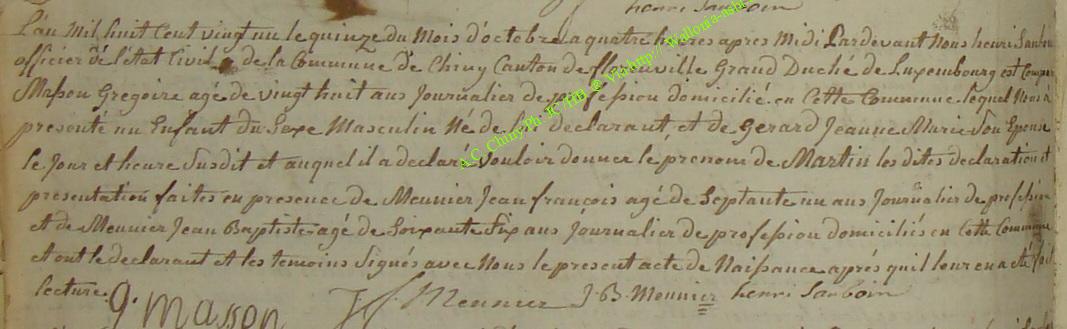 henri Sauboin
L'an Mil huit Cent vingt un le quinze du Mois d'octobre a quatre heures apres Midi Pardevant Nous henri Sauboin
officier de l'état Civil de la Commune de Chiny Canton de florenville Grand Duché de Luxembourg est Comparu
Masson Gregoire agé de vingt huit ans Journalier de profession domicilié en Cette Commune lequel Nous a
presenté un Enfant du Sexe Masculin Né de lui declarant, et de Gerard Jeanne Marie Son Epouse
le Jour et heure Susdit et auquel il a declaré Vouloir donner le prenom de Martin les dites declaration et
presentation faites en presence de Meunier Jean françois agé de Septante un ans Journalier de profession
et de Meunier Jean Baptiste agé de Soixante Six ans Journalier de profession domiciliés en Cette Commune
et ont le declarant et les temoins Signés avec Nous le present acte de Naissance aprés quil leur en a été fait
lecture.
g. masson J f Meunier J. B. Meunier henri Sauboin
A.C. Chiny Ph. JC HB @ Via http// Wallonia-asbl